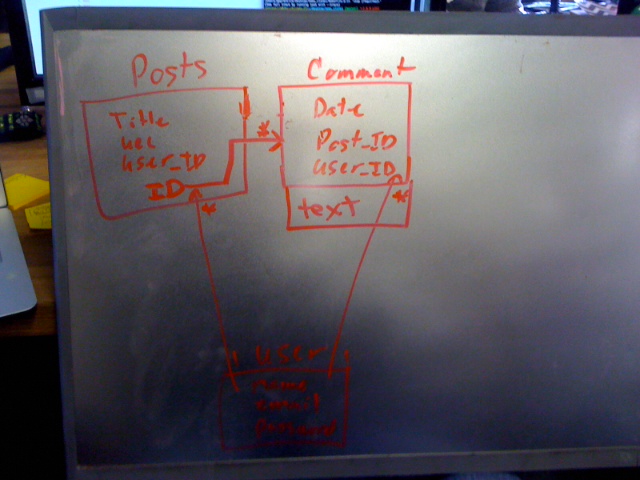 Posts
Title
User_ID
ID
1
*
*
Comment
Date
Post_ID
User_ID
text
*
1 user 1
name
email
Password